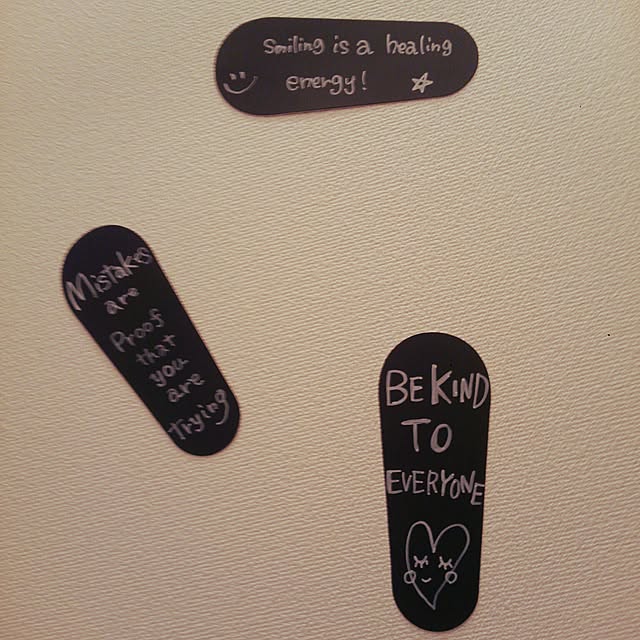 Smiling is a healing
energy!
Mistakes
are
Proof
that
you
are
Trying
BE KIND
TO
EVERYONE